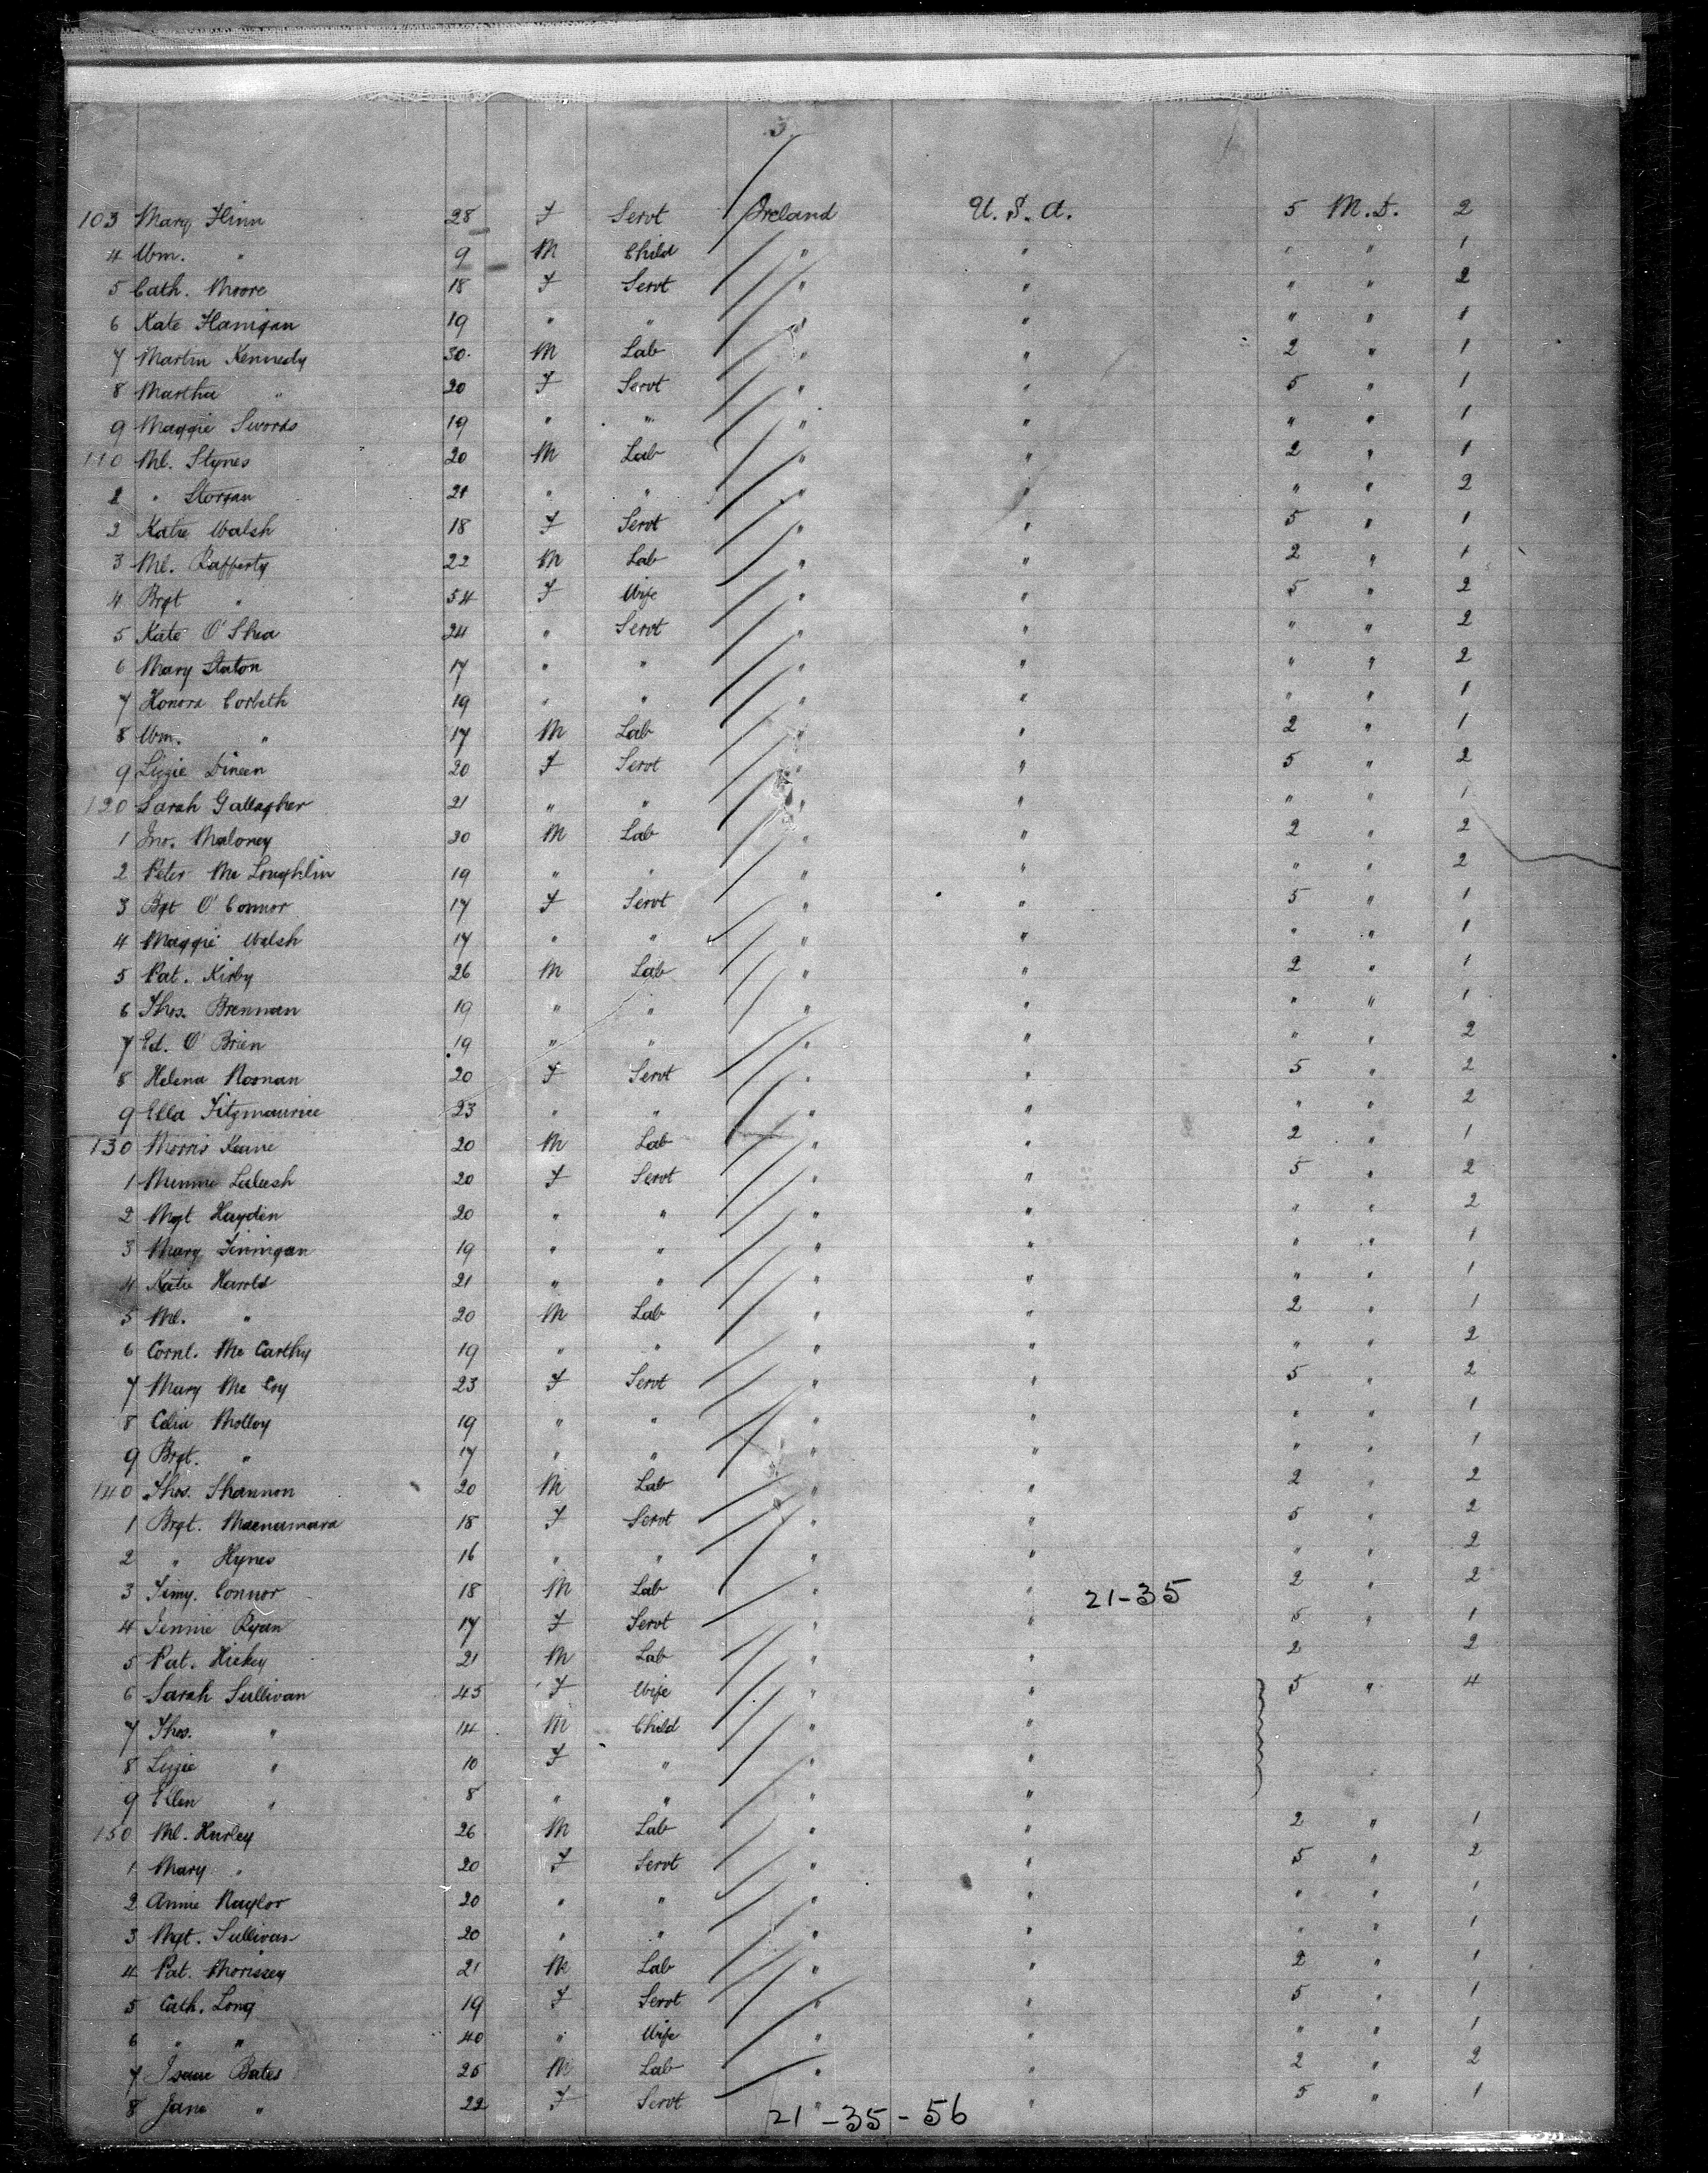 3.
103 Mary Flinn 28 F Servt Ireland U.S.A. 5 M.D. 2
4 Wm. " 9 M Child " " " " 1
5 Cath. Moore 18 F Servt " " " " 2
6 Kate Hanigan 19 " " " " " " 1
7 Martin Kennedy 30 M Lab " " 2 " 1
8 Martha " 20 F Servt " " 5 " 1
9 Maggie Swords 19 " " " " " " 1
110 Ml. Stynes 20 M Lab " " 2 " 1
" 21 " " " " " " 2
2 Katie Walsh 18 F Servt " " 5 " 1
3 Ml. Rafferty 22 M Lab " " 2 " 1
4 Brgt " 54 F Wife " " 5 " 2
5 Kate O'Shea 24 " Servt " " " " 2
6 Mary Staton 17 " " " " " " 2
7 Honora Corbett 19 " " " " " " 1
8 Wm. " 17 M Lab " " 2 " 1
9 Lizzie Dineen 20 F Servt " " 5 " 2
120 Sarah Gallagher 21 " " " " " " 1
1 Jno. Maloney 20 M Lab " " 2 " 2
2 Peter Mc Loughlin 19 " " " " " " 2
3 Bgt O'Connor 17 F Servt " " 5 " 1
4 Maggie Walsh 17 " " " " " " 1
5 Pat. Kirby 26 M Lab " " 2 " 1
6 Thos. Brennan 19 " " " " " " 1
7 Ed. O'Brien 19 " " " " " " 2
8 Helena Noonan 20 F Servt " " 5 " 2
9 Ella Fitzmaurice 23 " " " " " " 2
130 Morris Keane 20 M Lab " " 2 " 1
1 Minnie 20 F Servt " " 5 " 2
2 Mgt Hayden 20 " " " " " " 2
3 Mary Finnigan 19 " " " " " " 1
4 Katie Harold 21 " " " " " " 1
5 Ml. " 20 M Lab " " 2 " 1
6 Cornl. Mc Carthy 19 " " " " " " 2
7 Mary Mc 23 F Servt " " 5 " 2
8 Celia Molloy 19 " " " " " " 1
9 Brgt. " 17 " " " " " " 1
140 Thos. Shannon 20 M Lab " " 2 " 2
1 Brgt. Macnamara 18 F Servt " " 5 " 2
2 " Hynes 16 " " " " " " 2
3 Timy. Connor 18 M Lab " " 21-35 2 " 2
4 Jennie Ryan 17 F Servt " " 5 " 1
5 Pat. Hickey 21 M Lab " " 2 2
6 Sarah Sullivan 45 F Wife " " 5 " 4
7 Thos. " 14 M Child " "
8 Lizzie " 10 F " " "
9 Ellen " 8 " " " "
150 Ml. Hurley 26 M Lab " " 2 " 1
1 Mary " 20 F Servt " " 5 " 2
2 Annie Naylor 20 " " " " " " 1
3 Mgt. Sullivan 20 " " " " " " 1
4 Pat. Morissey 21 M Lab " " 2 " 1
5 Cath. Long 19 F Servt " " 5 " 1
6 " " 40 " Wife " " " " 1
7 Isaac Bates 25 M Lab " " 2 " 2
8 Jane " 22 F Servt " " 5 " 1
21-35-56